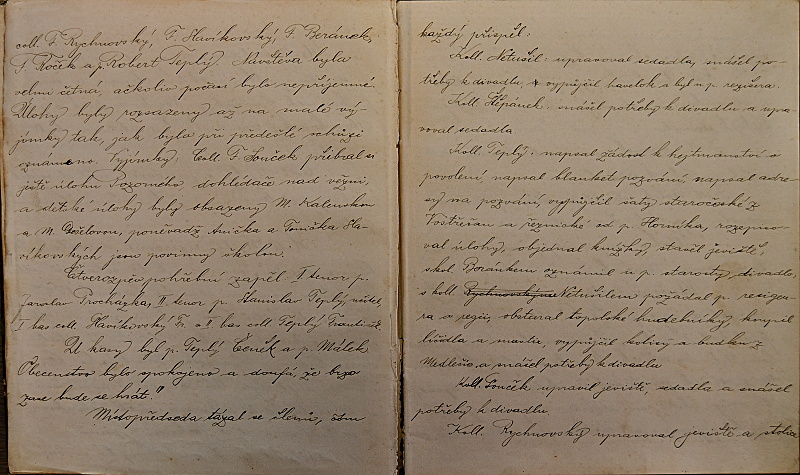 coll. F. Rychnovský, F. Slavíkovský, F. Beránek,
F. Roček a p. Robert Teplý. Návštěva byla
velmi četna, ačkoliv počasí bylo nepříjemné.
Úlohy byly rozsazeny až na malé vý-
jimky tak, jak bylo při předešlé schůzi
oznámeno. Výjimky: Coll. F. Souček přibral si
ještě úlohu Pozorného, dohlédače nad vězni,
a dětské úlohy byly obsazeny M. Kalenskou
a M. poněvadž Anička a Tonička Sla-
víkovských jsou povinny školou.
Čtverozpěv pohřební zapěl I tenor p.
Jaroslav Procházka, II. tenor p. Stanislav Teplý, učitel,
I bas coll. Slavíkovský Fr. a II bas coll. Teplý Frant.
U kasy byl p. Teplý Čeněk a p. Málek
Obecenstvo bylo spokojeno a doufá, že brzo
zase bude se hrát."
Místopředseda tázal se členů, čím
každý přispěl:
Koll. Netušil: upravoval sedadla, snášel po-
třeby k divadlu, vypůjčil havelok a byl u p. režiséra.
Koll. Štěpánek: snášel potřeby k divadlu a upra-
voval sedadla
Koll. Teplý: napsal žádost k hejtmanství o
povolení, napsal blanket pozvání, napsal adre-
sy na pozvání, vypůjčil šaty staročeské z
Vostřetan a řeznické od p. Horníka, rozepiso-
val úlohy, objednal knížky, stavěl jeviště,
s kol. Beránkem oznámil u p. starosty divadlo,
s koll. Rychnovským Netušilem požádal p.
ra o regii, obstaral topolské hudebníky, koupil
líčidla a mastix, vypůjčil kulisy a budku z
Medlešic, a snášel potřeby k divadlu
Koll. Souček upravil jeviště, sedadla a snášel
potřeby k divadlu.
Koll. Rychnovský upravoval jeviště a stolice